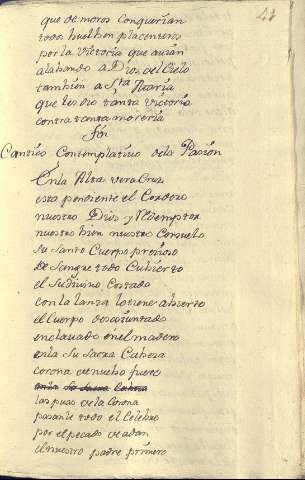 41
que de moros conquerian
todos buelben placenteros
por la Victoria que avian
alabando a Dios del Cielo
tambien a Sta Maria
que les dio tanta victoria
contra tanta moreria
fin
Cantico Contemplativo dela Pasion
En la Alta vera Cruz
esta pendiente el Cordero
nuestro Dios y Redemptor
nuestro bien nuestro Consuelo
Su Santo Cuerpo precioso
de Sangre todo Cubierto
el Su divino Costado
con la lanza lo tiene abierto
el Cuerpo descoiuntado
enclavado en el madero
en la Su Sacra Cabeza
corona de mucho fuero
en la Su Sacra Cabeza
las puas de la Corona
pasanle todo el Celebro
por el pecado de adan
el nuestro padre primero